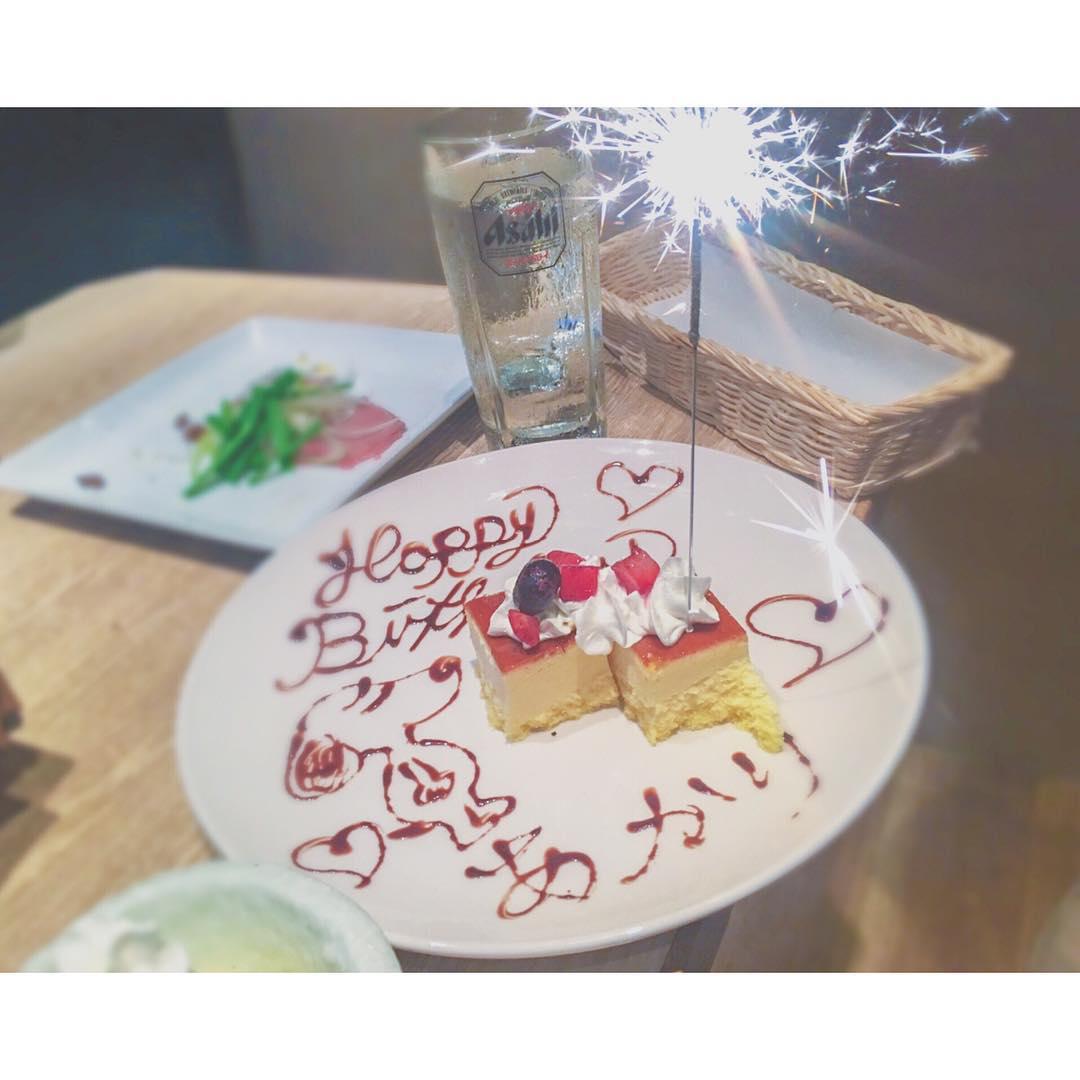 Asahi
Happy
Birth
あかり